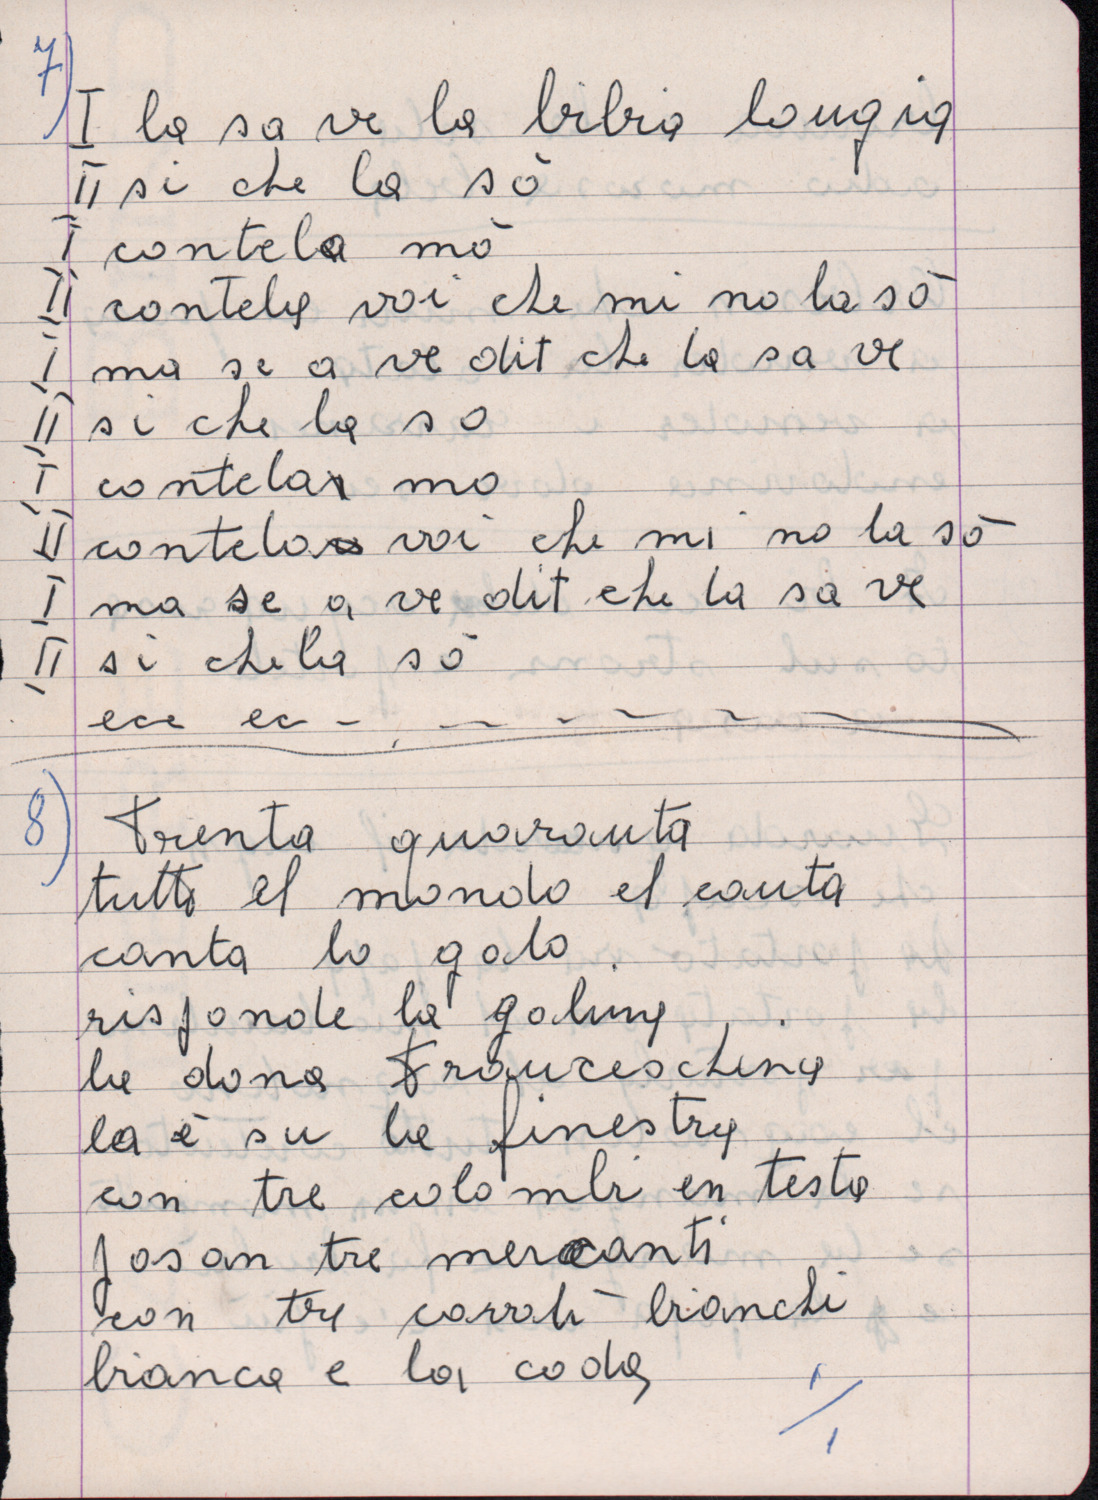 7)
I la sa ve la bibia longia
II si che la sò
I contela mò
II contela voi che mi no la sò
I ma se a ve dit che la sa ve
II si che la so
I contela mo
II contela voi che mi no la sò
I ma se a ve dit che la sa ve
II si che la sò
ece ec -
8) Trenta quaranta
tutto el mondo el canta
canta lo galo
risponde la galina
la dona Franceschina
la è su la finestra
con tre colombi en testa
posan tre mercanti
con tre cavali bianchi
bianca e la coda